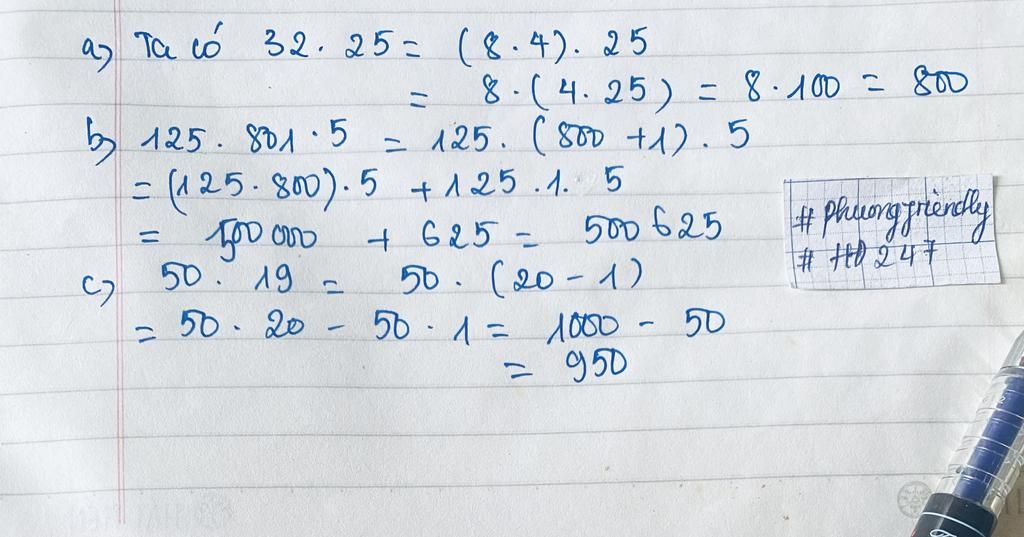 a) Ta có 32 . 25 = (8 . 4) . 25
= 8 . (4 . 25) = 8 . 100 = 800
b) 125 . 801 . 5 = 125 . (800 + 1) . 5
= (125 . 800) . 5 + 125 . 1 . 5
= 500 000 + 625 = 500 625
c) 50 . 19 = 50 . (20 - 1)
= 50 . 20 - 50 . 1 = 1000 - 50
= 950
# phuongfriendly
# HD 247